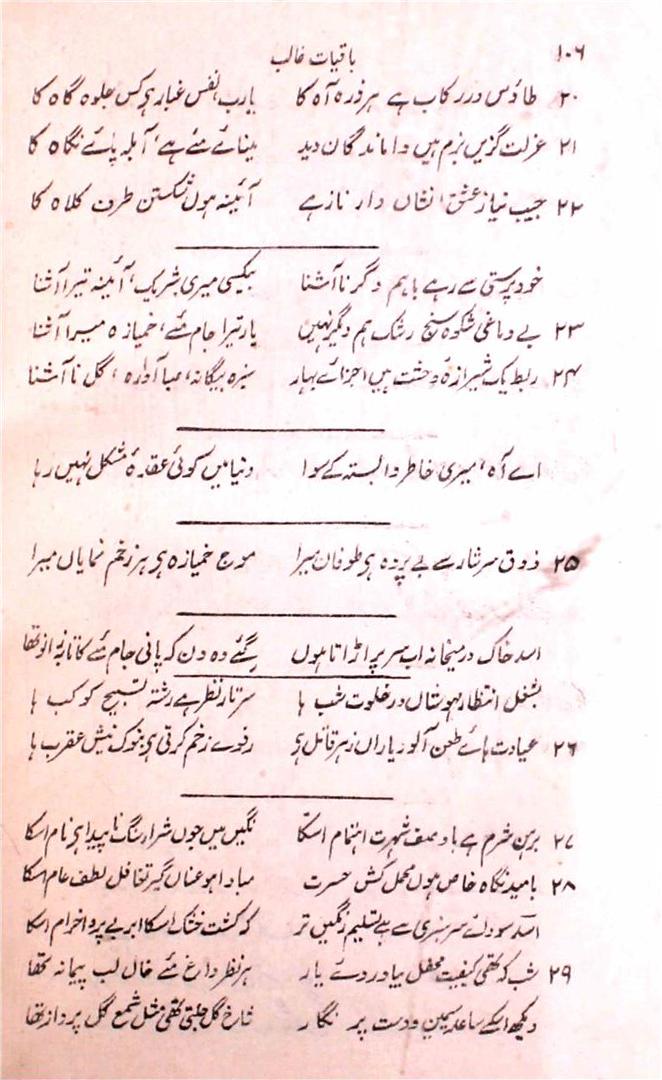 ۱۰۶ باقیات غالب
۲۰ طاؤس در رکاب ہے ہر ذرہ آہ کا یارب نفس غبار ہی کس جلوہ گاہ کا
۲۱ عزلت گزین بزم ہیں واماندگان دید مینائے مئے ہے، آبلہ پائے نگاہ کا
۲۲ جیب نیاز عشق، نشاں دار ناز ہے آئینہ ہوں شکستن طرف کلاہ کا
خود پرستی سے رہے باہم دگر ناآشنا بیکسی میری شریک، آئینہ تیرا آشنا
۲۳ بے دماغی شکوہ سنج رشک ہم دیگر نہیں یار تیرا جام مئے، خمیازہ میرا آشنا
۲۴ ربط یک شیرازۂ وحشت ہیں اجزائے بہار سبزہ بیگانہ، صبا آوارہ، گل ناآشنا
اے آہ، میری خاطر وابستہ کے سوا دنیا میں کوئی عقدۂ مشکل نہیں رہا
۲۵ ذوق سرشار سے بے پردہ ہی طوفاں میرا موج خمیازہ ہی ہر زخم نمایاں میرا
اسد خاک در میخانہ اب سر پر اڑاتا ہوں گئے وہ دن کہ پانی جام مئے کا تا زانو تھا
بشغل انتظار مہوشاں در خلوت شب ہا سر تار نظر ہے رشتۂ تسبیح کوکب ہا
۲۶ عیادت ہائے طعن آلود یاراں زہر قاتل ہی رفوے زخم کرتی ہی بنوک نیش عقرب ہا
۲۷ برہن شرم ہے با وصف شہرت اہتمام اسکا نگیں میں جوں شرار سنگ نا پیدا ہی نام اسکا
۲۸ بامید نگاہ خاص ہوں محمل کش حسرت مبادا ہو عناں گیر تغافل لطف عام اسکا
اسد سودائے سرسبزی سے ہے تسلیم رنگیں تر کہ کشت خشک اسکا ابر بے پروا خرام اسکا
۲۹ شب کہ تھی کیفیت محفل بیاد روئے یار ہر نظر داغ مئے خال لب پیمانہ تھا
دیکھ اسکے ساعد سیمین و دست پر نگار شاخ گل جلتی تھی مثل شمع گل پروانہ تھا